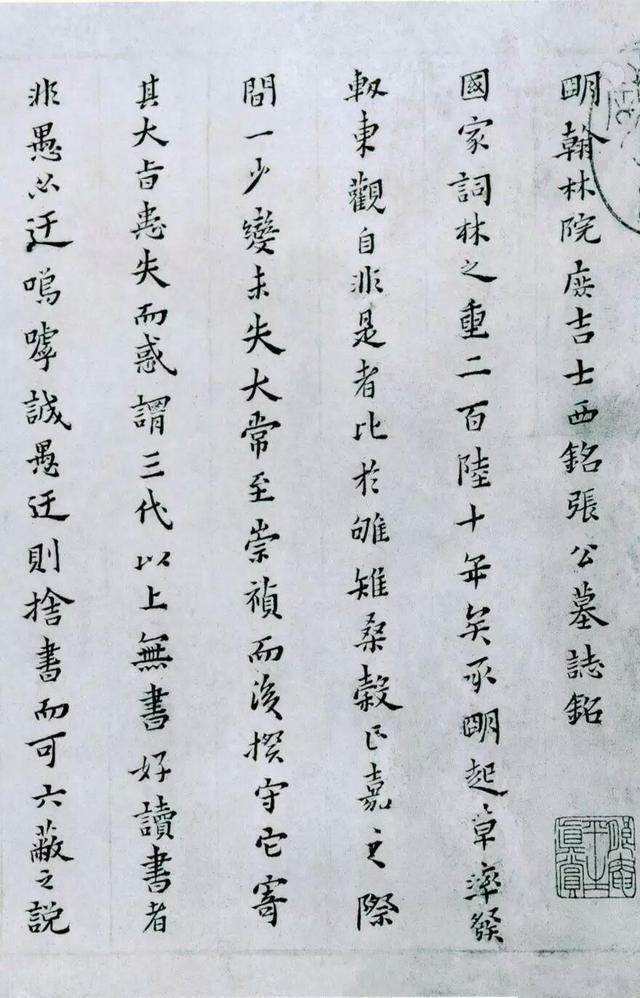 朙翰林院庶吉士西銘張公墓誌銘
國家詞林之重二百陸十年矣承朙起草率發
軔東觀自非是者比於雊雉桑榖正嘉之際
間一少變未失大常至崇禎而後揆守它寄
其大旨患失而惑謂三代以上無書好讀書者
非愚必迂嗚嘑誠愚迂則捨書而可六蔽之説